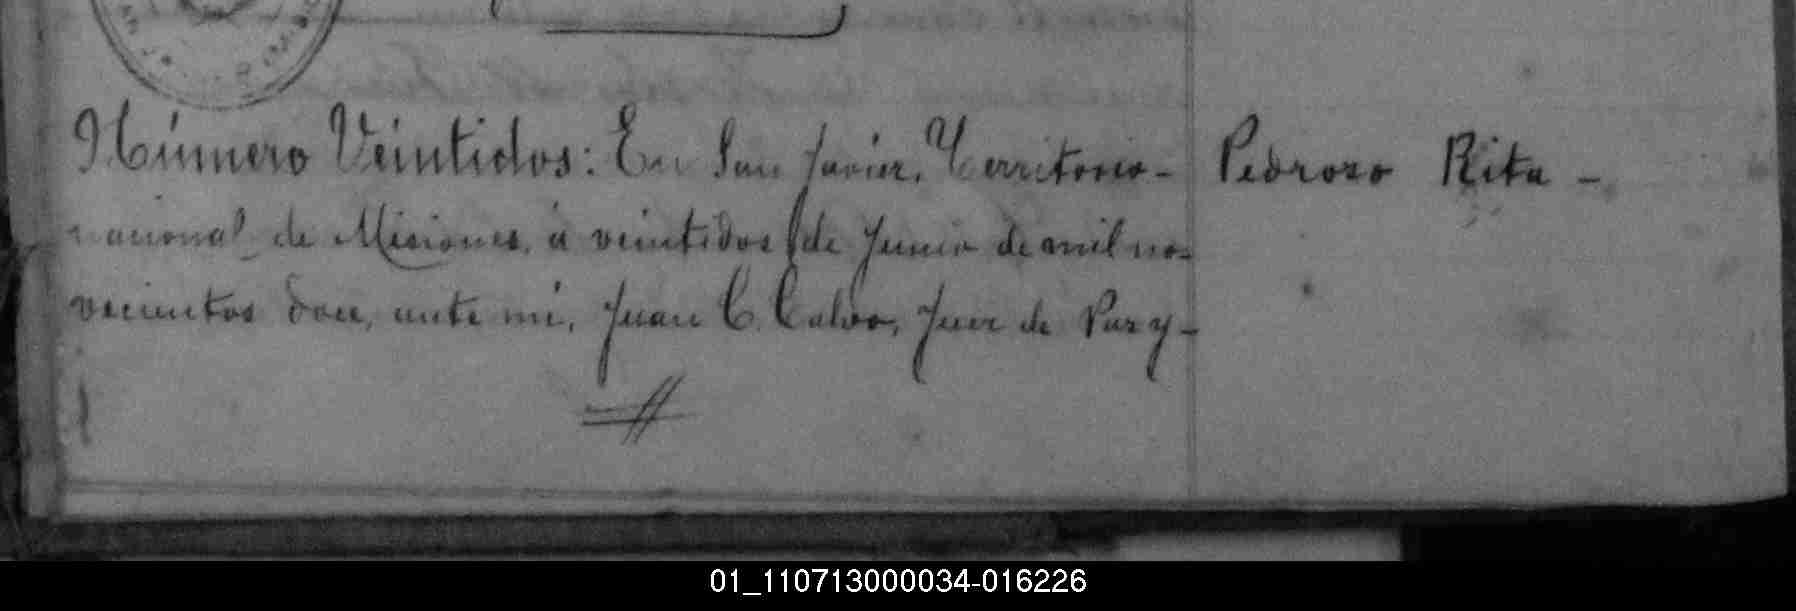 Número Veintidos: En San Javier, Territorio-
Pedroso Rita -
nacional de Misiones, á veintidos de Junio de mil no-
vecientos doce, ante mí, Juan C. Calvo, Juez de Paz y-
01_110713000034-016226